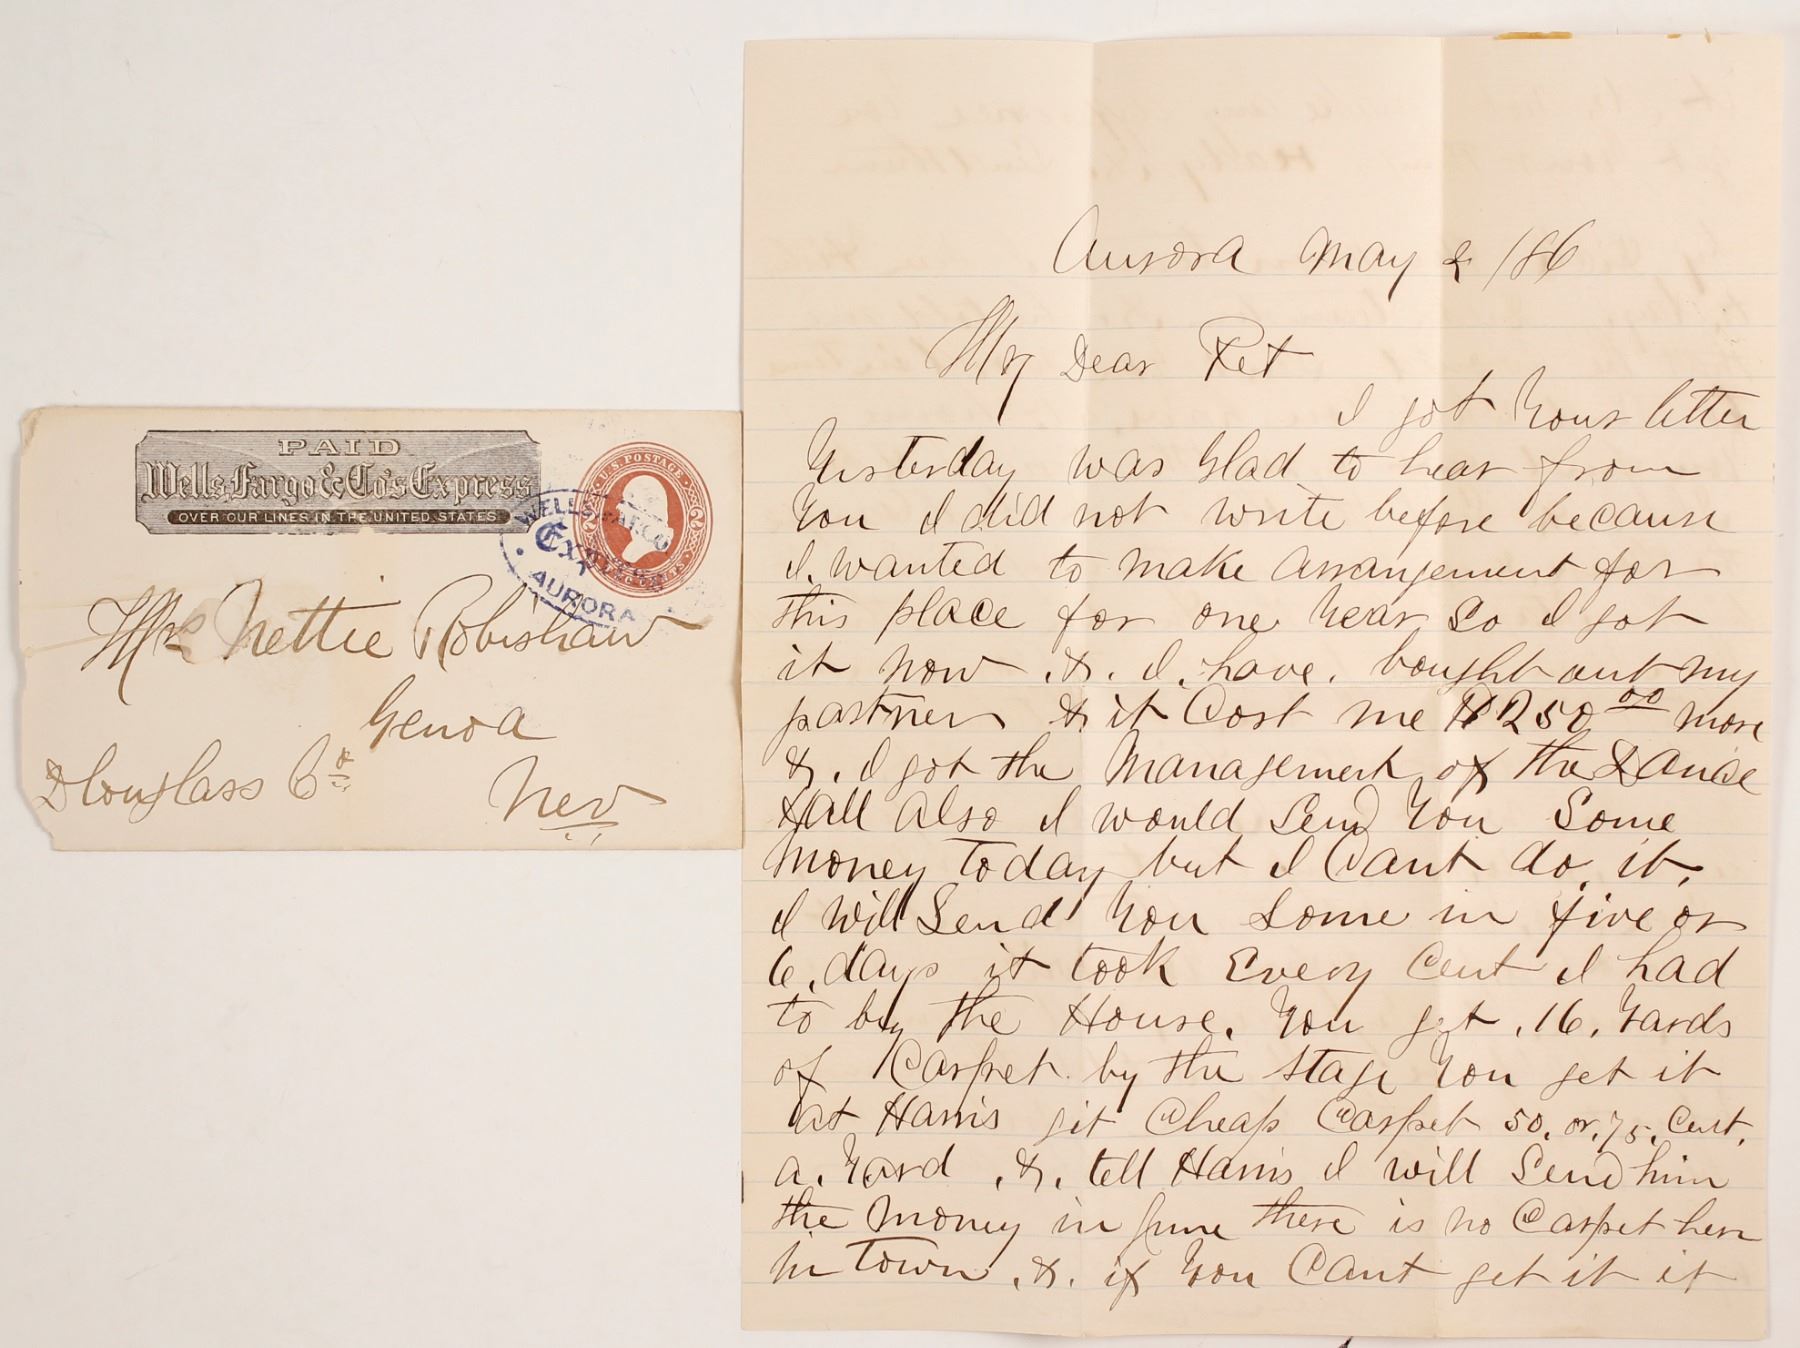 PAID
Wells, Fargo & Co's Express
OVER OUR LINES IN THE UNITED STATES
U.S. POSTAGE
TWO CENTS
WELLS FARGO
EXPRESS
AURORA
Mrs Nettie Robishaw
Genoa
Douglass Co
Nev
Aurora May 2 / 86
My Dear Pet
I got Your letter
Yesterday was Glad to hear from
You I did not write before because
I. wanted to make Arrangement for
this place for one Year So I got
it now . & . I . have . bought out my
partner & it Cost me $ 250 00 more
& . I got the Management of the Dance
Hall Also I would Send You Some
Money Today but I Cant do . it .
I will Send You Some in five or
6 . days it took Every Cent I had
to by the House . You get . 16 . Yards
of Carpet . by the Stage You get it
at Harris git Cheap Carpet 50 . or . 75 . Cent .
a . Yard . & . tell Harris I will Send him
the Money in June there is no Carpet here
in Town . & . if You Cant get it it